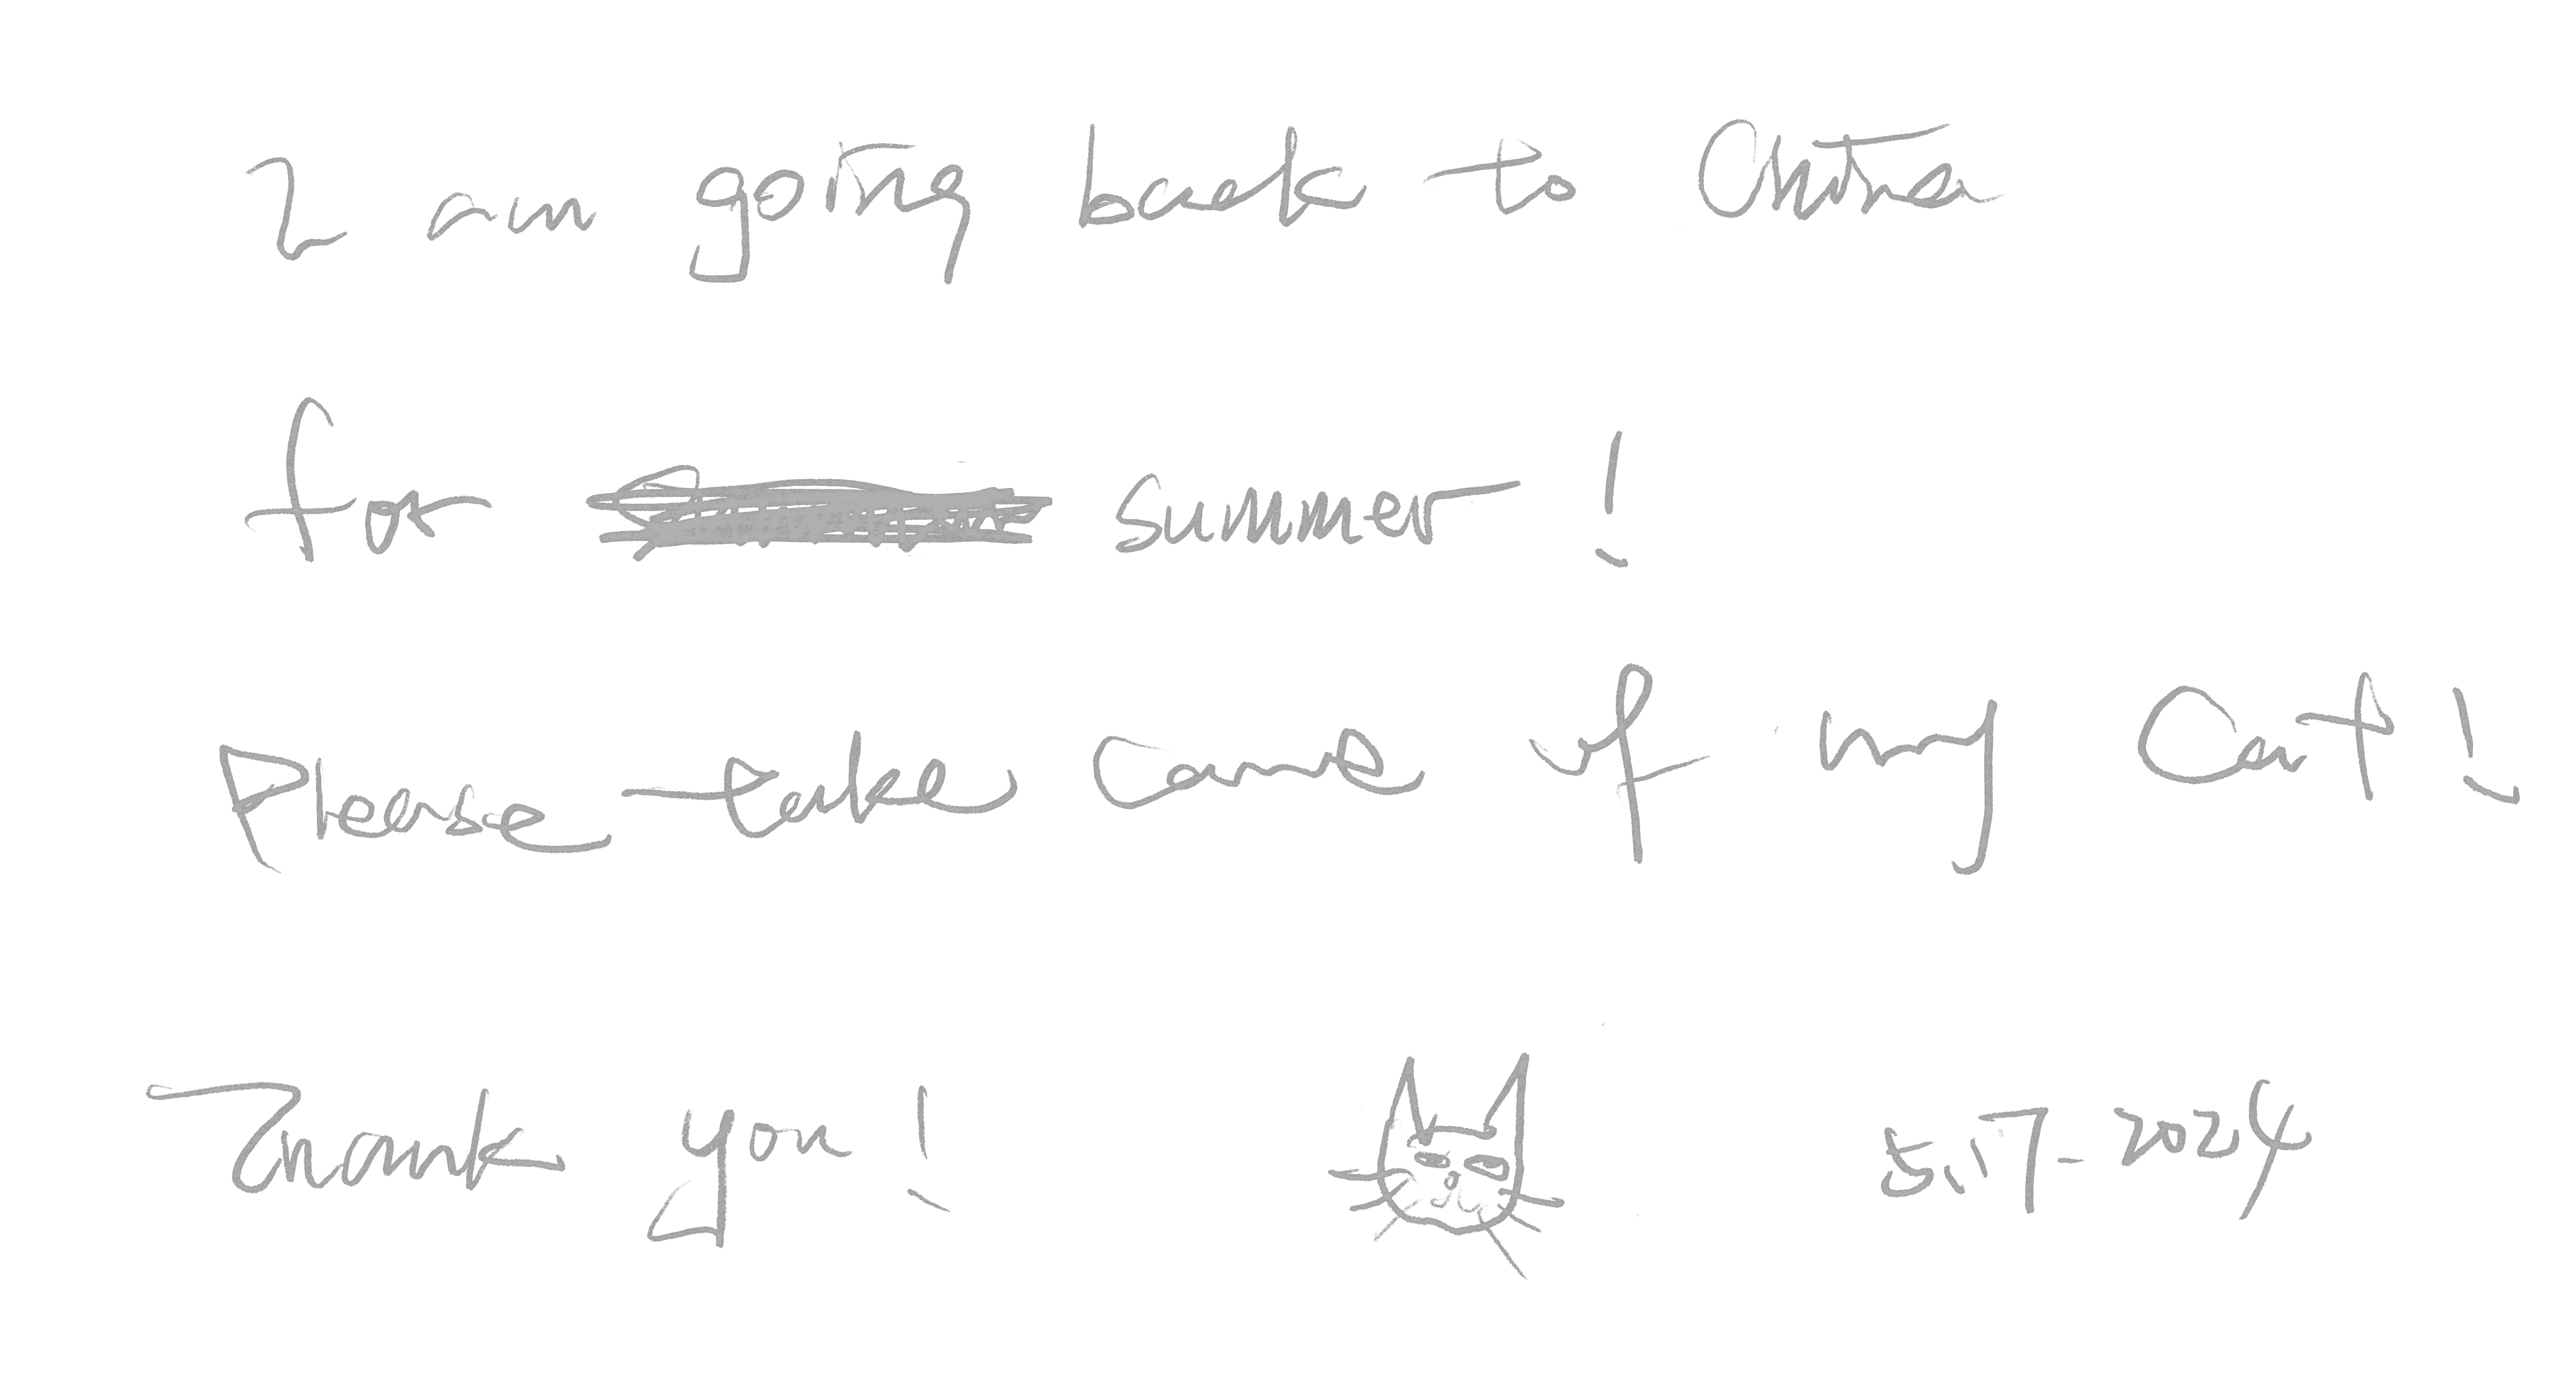 I am going back to China
for summer!
Please take care of my Cat!
Thank you! 5.17-2024